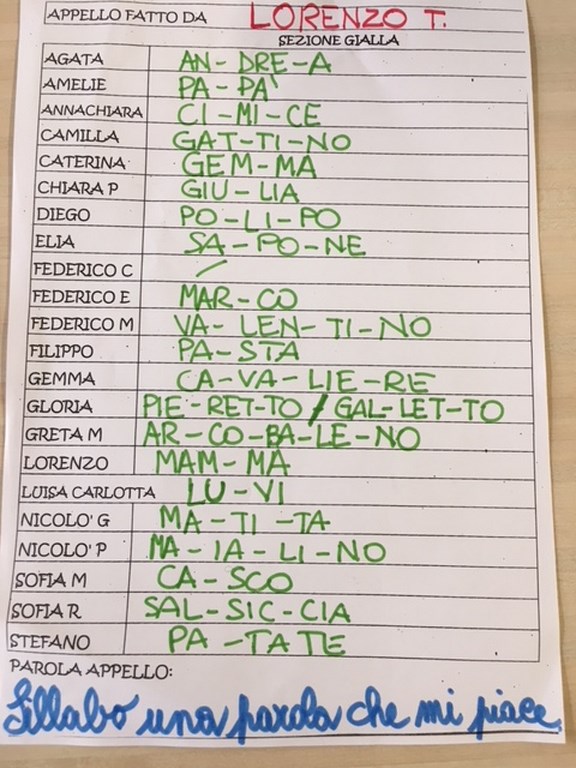 APPELLO FATTO DA LORENZO T.
SEZIONE GIALLA
AGATA AN-DRE-A
AMELIE PA-PA'
ANNACHIARA CI-MI-CE
CAMILLA GAT-TI-NO
CATERINA GEM-MA
CHIARA P GIU-LIA
DIEGO PO-LI-PO
ELIA SA-PO-NE
FEDERICO C /
FEDERICO E MAR-CO
FEDERICO M VA-LEN-TI-NO
FILIPPO PA-STA
GEMMA CA-VA-LIE-RE
GLORIA PIE-RET-TO / GAL-LET-TO
GRETA M AR-CO-BA-LE-NO
LORENZO MAM-MA
LUISA CARLOTTA LU-VI
NICOLO' G MA-TI-TA
NICOLO' P MA-IA-LI-NO
SOFIA M CA-SCO
SOFIA R SAL-SIC-CIA
STEFANO PA-TATE
PAROLA APPELLO:
Sillabo una parola che mi piace